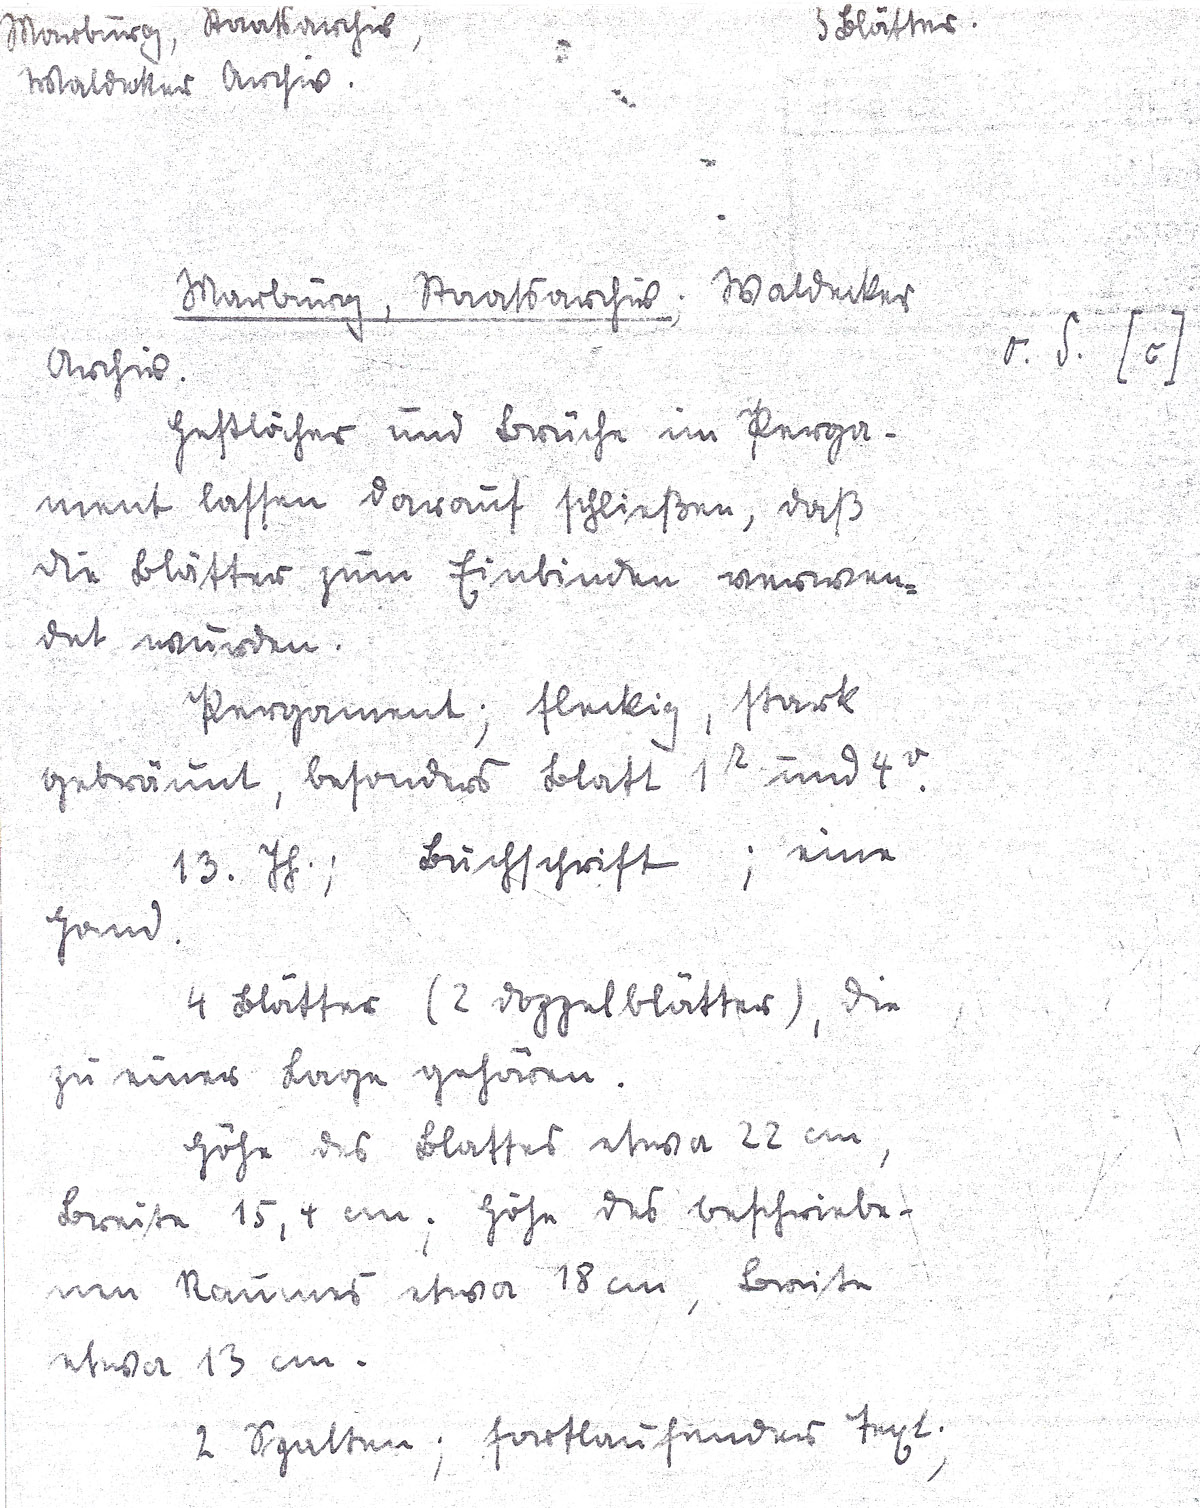 Marburg, Staatsarchiv,
Waldecker Archiv.
5 Blätter.
Marburg, Staatsarchiv; Waldecker
Archiv.
o. S. [c]
Heftlöcher und Brüche im Perga-
ment lassen darauf schließen, daß
die Blätter zum Einbinden verwen-
det wurden.
Pergament; fleckig, stark
gebräunt, besonders Blatt 1r und 4v.
13. Jh.; Buchschrift ; eine
Hand.
4 Blätter (2 Doppelblätter), die
zu einer Lage gehören.
Höhe des Blattes etwa 22 cm,
Breite 15,4 cm; Höhe des beschriebe-
nen Raumes etwa 18 cm, Breite
etwa 13 cm.
2 Spalten; fortlaufender Text;